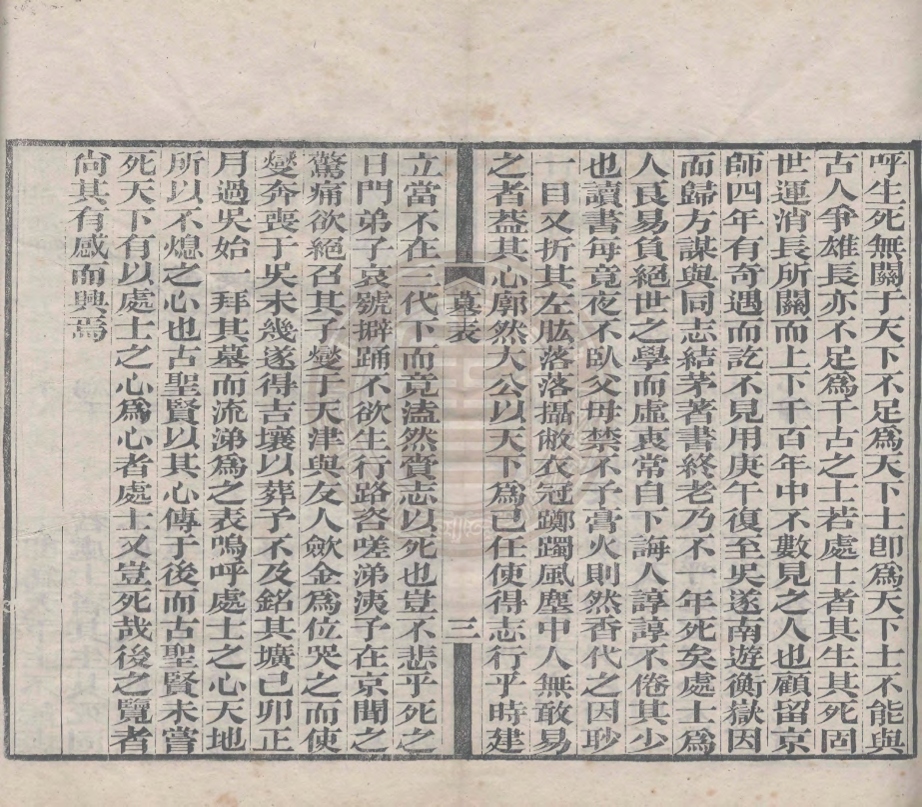 呼生死無關于天下不足爲天下士卽爲天下士不能與
古人爭雄長亦不足爲千古之士若處士者其生其死固
世運消長所關而上下千百年中不數見之人也顧留京
師四年有奇遇而訖不見用庚午復至吳遂南遊衡嶽因
而歸方謀與同志結茅著書終老乃不一年死矣處士爲
人良易負絕世之學而虛衷常自下誨人諄諄不倦其少
也讀書每竟夜不臥父母禁不予膏火則然香代之因眇
一目又折其左肱落落攝敝衣冠躑躅風塵中人無敢易
之者葢其心廓然大公以天下爲己任使得志行乎時建
墓表
三
立當不在三代下而竟溘然賫志以死也豈不悲乎死之
日門弟子哀號擗踊不欲生行路咨嗟涕洟予在京聞之
驚痛欲絕召其子燮于天津與友人歛金爲位哭之而使
燮奔喪于吳未幾遂得吉壤以葬予不及銘其壙己卯正
月過吳始一拜其墓而流涕爲之表嗚呼處士之心天地
所以不熄之心也古聖賢以其心傳于後而古聖賢未嘗
死天下有以處士之心爲心者處士又豈死哉後之覽者
尙其有感而興焉